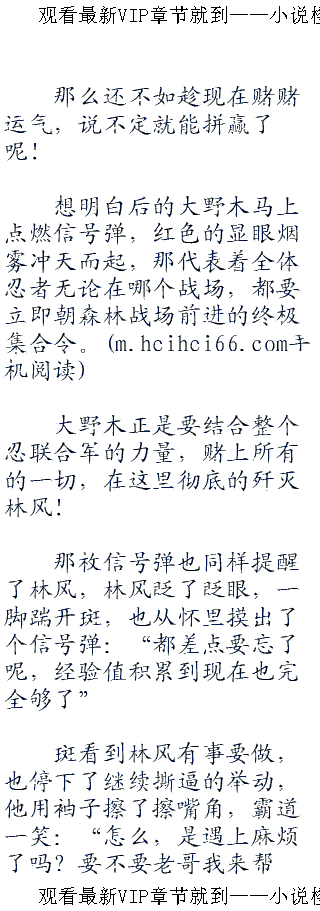 观看最新VIP章节就到——小说
那么还不如趁现在赌赌
运气，说不定就能拼赢了
呢！
想明白后的大野木马上
点燃信号弹，红色的显眼烟
雾冲天而起，那代表着全体
忍者无论在哪个战场，都要
立即朝森林战场前进的终极
集合令。(m.hcihci66.com手
机阅读)
大野木正是要结合整个
忍联合军的力量，赌上所有
的一切，在这里彻底的歼灭
林风！
那枚信号弹也同样提醒
了林风，林风眨了眨眼，一
脚踹开斑，也从怀里摸出了
个信号弹：“都差点要忘了
呢，经验值积累到现在也完
全够了”
斑看到林风有事要做，
也停下了继续撕逼的举动，
他用袖子擦了擦嘴角，霸道
一笑：“怎么，是遇上麻烦
了吗？要不要老哥我来帮
观看最新VIP章节就到——小说